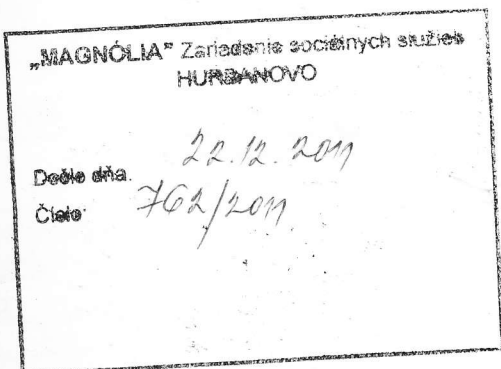 „MAGNÓLIA” Zariadenie sociálnych služieb
HURBANOVO
Došlo dňa. 22.12.2011
Číslo 762/2011